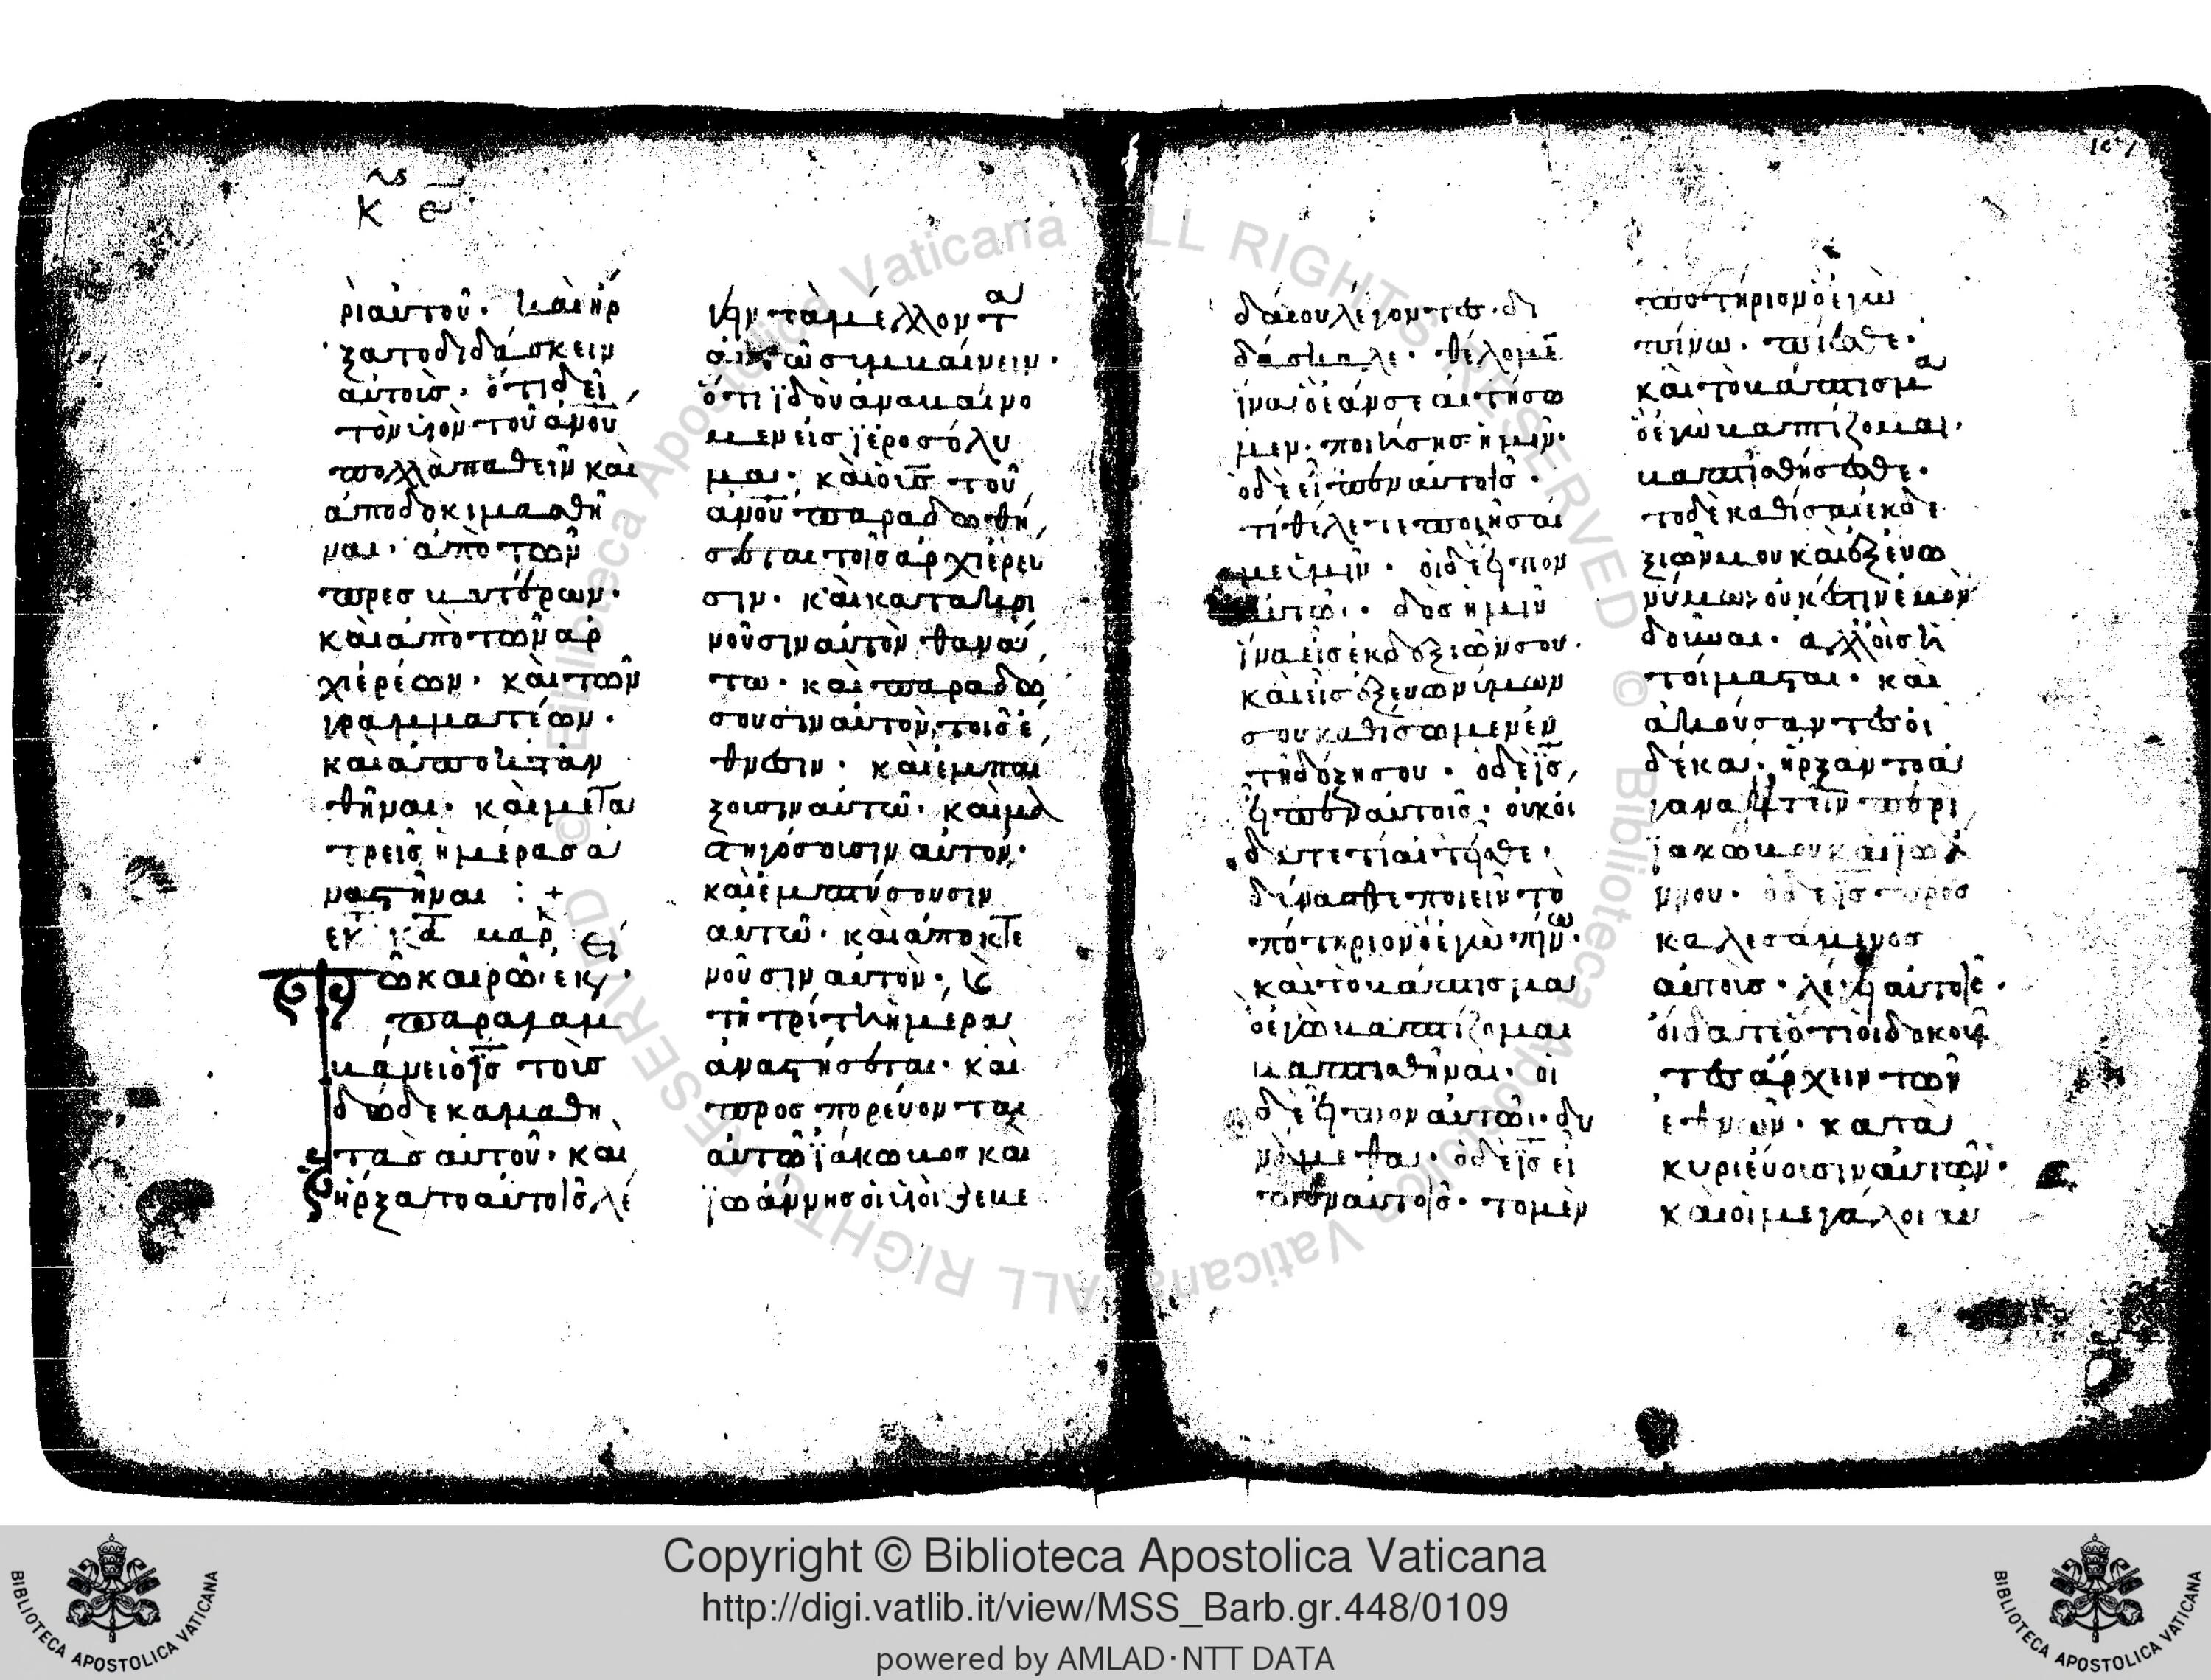 Κ ε
ρι αυτου· και ηρ
ξατο διδάσκειν
αυτοις· ότι δεῖ
τὸν υἱὸν τοῦ ἀνου
πολλὰ παθεῖν καὶ
ἀποδοκιμασθῆ
ναι· ἀπὸ τῶν
πρεσβυτέρων·
καὶ ἀπὸ τῶν ἀρ
χιερέων· καὶ τῶν
γραμματέων·
καὶ ἀποκταν
θῆναι· καὶ μετὰ
τρεῖς ἡμέρας ἀ
ναστῆναι : +
εκ κατα μαρ
Τῶ καιρῶ εκ
παραλαμ
βάνει ὁ ις τοὺς
δώδεκα μαθη
τὰς αὐτοῦ· καὶ
ἤρξατο αὐτοῖς λέ
γειν τὰ μέλλοντα
αὐτῶ συμβαίνειν·
ὅτι ἰδοὺ ἀναβαίνο
μεν εἰς ἱεροσόλυ
μα· καὶ ὁ υς τοῦ
ανου παραδοθή
σεται τοῖς ἀρχιερεῦ
σιν· καὶ κατακρι
νοῦσιν αὐτὸν θανά
τω· καὶ παραδώ
σουσιν αὐτὸν τοῖς ἔ
θνεσιν· καὶ ἐμπαί
ξουσιν αὐτῶ· καὶ μα
στιγώσουσιν αὐτόν·
καὶ ἐμπτύσουσιν
αὐτῶ· καὶ ἀποκτε
νοῦσιν αὐτὸν· καὶ
τῆ τρίτη ἡμέρα
ἀναστήσεται· καὶ
προσπορεύονται
αὐτῶ ἰάκωβος καὶ
ἰωάννης οἱ υἱοὶ ζεβε
δαίου λέγοντες· δι
δάσκαλε· θέλομεν
ἵνα ὃ ἐὰν σε αἰτήσω
μεν· ποιήσης ἡμῖν·
ὁ δὲ εἶπεν αὐτοῖς·
τί θέλετε ποιῆσαι
με ὑμῖν· οἱ δὲ εἶπον
αὐτῶ· δὸς ἡμῖν
ἵνα εἷς ἐκ δεξιῶν σου·
καὶ εἷς ἐξ εὐωνύμων
σου καθίσωμεν ἐν
τῆ δόξη σου· ὁ δὲ ις
εἶπεν αὐτοῖς· οὐκ οἴ
δατε τί αἰτεῖσθε·
δύνασθε ποιεῖν τὸ
ποτήριον ὃ ἐγὼ πίνω·
καὶ τὸ βάπτισμα
ὃ ἐγὼ βαπτίζομαι
βαπτισθῆναι· οἱ
δὲ εἶπον αὐτῶ· δυ
νάμεθα· ὁ δὲ ις εἶ
πεν αὐτοῖς· τὸ μὲν
ποτήριον ὃ ἐγὼ
πίνω· πίεσθε·
καὶ τὸ βάπτισμα
ὃ ἐγὼ βαπτίζομαι·
βαπτισθήσεσθε·
τὸ δὲ καθίσαι ἐκ δε
ξιῶν μου καὶ ἐξ εὐω
νύμων οὐκ ἔστιν ἐμὸν
δοῦναι· ἀλλ οἷς ἡ
τοίμασται· καὶ
ἀκούσαντες οἱ
δέκα· ἤρξαντο ἀ
γανακτεῖν περὶ
ἰακώβου καὶ ἰωά
ννου· ὁ δὲ ις προσ
καλεσάμενος
αὐτοὺς· λέγει αὐτοῖς·
οἴδατε ὅτι οἱ δοκοῦν
τες ἄρχειν τῶν
ἐθνῶν· κατα
κυριεύουσιν αὐτῶν·
καὶ οἱ μεγάλοι αὐ
Copyright © Biblioteca Apostolica Vaticana
http://digi.vatlib.it/view/MSS_Barb.gr.448/0109
powered by AMLAD·NTT DATA
BIBLIOTECA APOSTOLICA VATICANA
BIBLIOTECA APOSTOLICA VATICANA